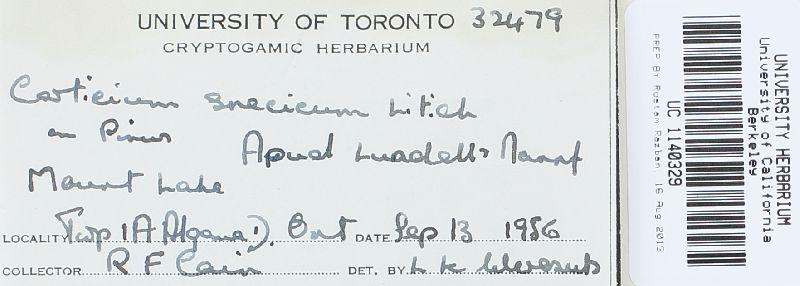 UNIVERSITY OF TORONTO 32479
CRYPTOGAMIC HERBARIUM
Corticium suecicum Litsch
on Pinus
Apud Luadell & Nannf
Mount Lake
LOCALITY Twp 1A Algoma D. Ont DATE Sep 13 1956
COLLECTOR R F Cain DET. BY L K Weresub
UNIVERSITY HERBARIUM
University of California
Berkeley
UC 1140329
PREP BY Rustam Razban, 16 Aug 2013